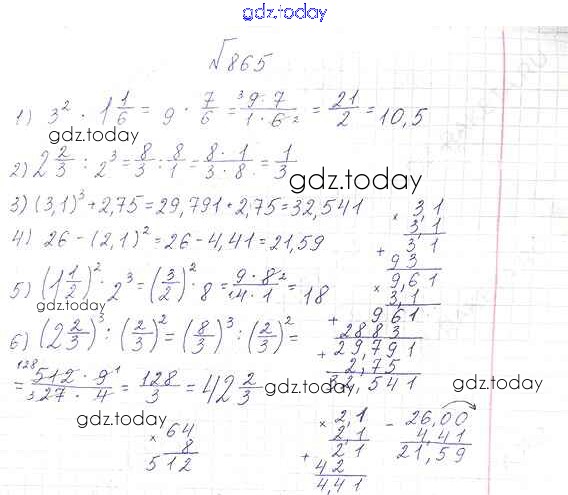 gdz.today
№865
1) 3² · 1 1/6 = 9 · 7/6 = ³9·7/1·6₂ = 21/2 = 10,5
gdz.today
2) 2 2/3 : 2³ = 8/3 : 8/1 = 8·1/3·8 = 1/3
gdz.today
3) (3,1)³ + 2,75 = 29,791 + 2,75 = 32,541
4) 26 - (2,1)² = 26 - 4,41 = 21,59
5) (1 1/2)² · 2³ = (3/2)² · 8 = 9·8²/4·1 = 18
gdz.today
6) (2 2/3)³ : (2/3)² = (8/3)³ : (2/3)² =
= ¹²⁸512·9¹/₃27·4 = 128/3 = 42 2/3
gdz.today
gdz.today
gdz.today
× 3,1
3,1
+ 3 1
9 3
× 9,61
3,1
+ 961
2883
+ 29,791
2,75
32,541
× 64
8
512
× 2,1
2,1
+ 2 1
4 2
4,41
- 26,00
4,41
21,59